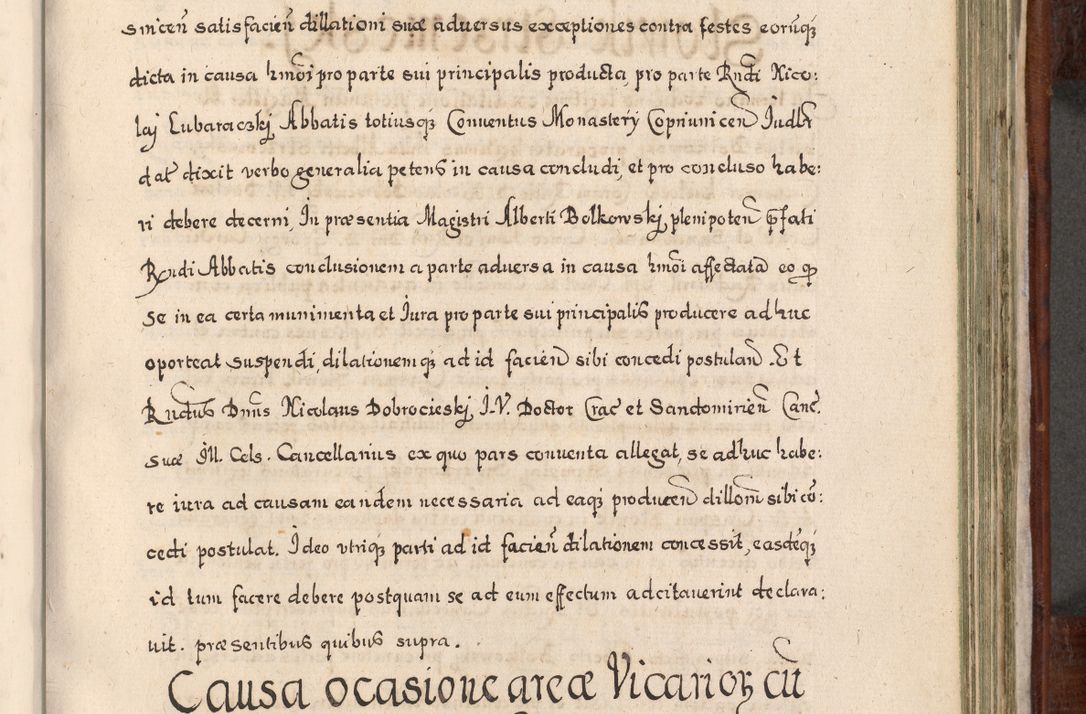 sincen̄ satisfacien̄ dillationi suæ adversus exceptiones contra testes eorūq̄
dicta in causa hmōi pro parte sui principalis producta, pro parte Rndi Nico:
laj Lubaraczkj Abbatis totiusq̄ Conuentus Monasterÿ Copriunicen̄ Judlr
dat̄ dixit verbo generalia petens in causa concludi, et pro concluso habe:
ri debere decerni, In præsentia Magistri Alberti Bolkowskj, plenipoten̄ p̄fati
Rndi Abbatis conclusionem a parte adversa in causa hmōi affectatā eo qp
se in ea certa munimenta et Jura pro parte sui principalis producere adhuc
oporteat suspendi, dilationemq̄ ad id facien̄ sibi concedi postulan̄. Et
Rndus Dnus Nicolaus Dobrocieskj, I.V. Doctor Crac̄ et Sandomirien̄ Canc̄.
suæ Ill. Cels. Cancellarius ex quo pars conuenta allegat, se adhuc habe:
re iura ad causam eandem necessaria ad eaq̄ producen̄ dillom̄ sibi cō:
cedi postulat. Ideo vtriq̄ parti ad id facien̄ dilationem concessit, easdēq̄
id tum facere debere postquam se ad eum effectum adcitauerint declara:
uit. præsentibus quibus supra.
Causa ocasione areæ Vicarioꝝ cū